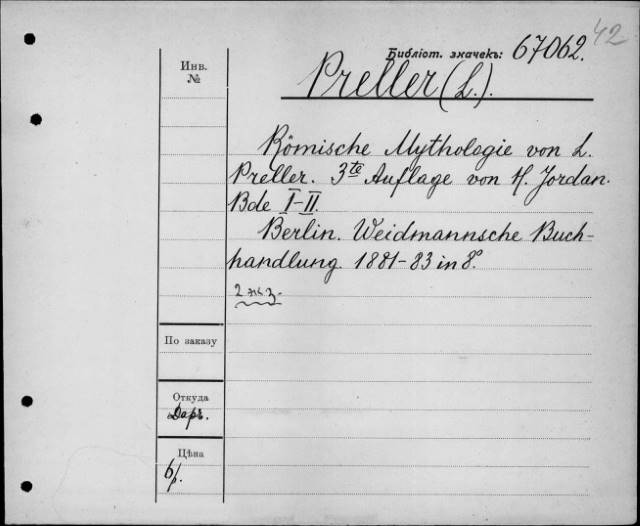 42
Библіот. значекъ: 67062.
Инв.
№
Preller (L.).
Römische Mythologie von L.
Preller. 3te Auflage von H. Jordan.
Bde I-II.
Berlin. Weidmannsche Buch-
handlung. 1881-83 in 8°.
2 экз.
По заказу
Откуда
Даръ.
Цѣна
б/.